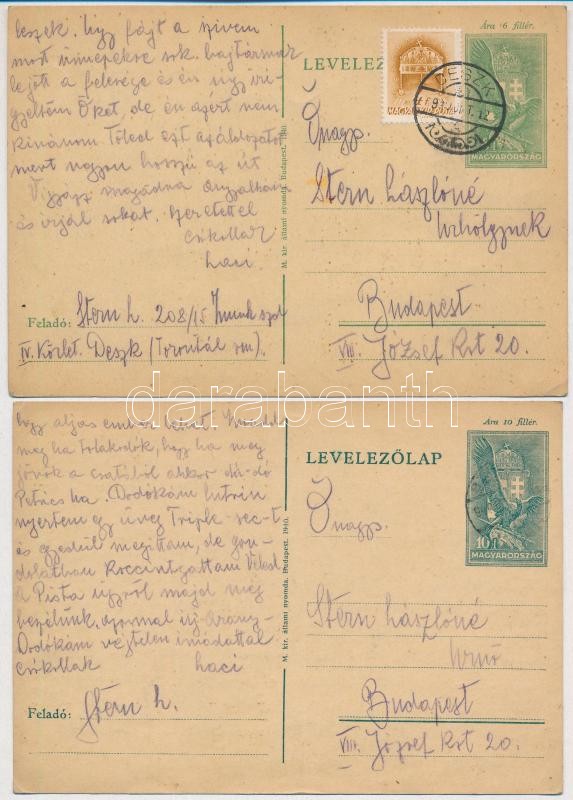 leszek. hogy fájt a szivem
most ünnepekre sok bajtársnak
lejött a felesége és én úgy iri-
gyeltem Őket, de én azért nem
kivánom Tőled ezt az áldozatot
mert nagyon hosszú az út
Vigyázz magadra Angyalkám
és irjál sokat. Szeretettel
csókollak
Laci
Feladó: Stern L. 208/15 munk szd
IV. Körlet. Deszk (Torontál vm).
M. kir. állami nyomda. Budapest. 1941
Ára 6 fillér.
LEVELEZ
DESZK
MAGYARORSZÁG
Önagys.
Stern Lászlóné
Úrhölgynek
Budapest
VIII. József Krt 20.
darabanth
hogy aljas ember
meg ha tolakodók, hogy ha meg
jövök a csatából akkor
Petrics ha. Dodókám
nyertem egy üveg Triple-sec-t
és egyedül megittam, de gon-
dolatban Koccintgattam Veled
a Pista ügyről majd még
beszélünk, Arany-
Dodókám végtelen imádattal
Csókollak Laci
Feladó: Stern L.
M. kir. állami nyomda. Budapest. 1940.
Ára 10 fillér.
LEVELEZŐLAP
10f
MAGYARORSZÁG
Önagys.
Stern Lászlóné
úrnő
Budapest
VIII. József Krt 20.